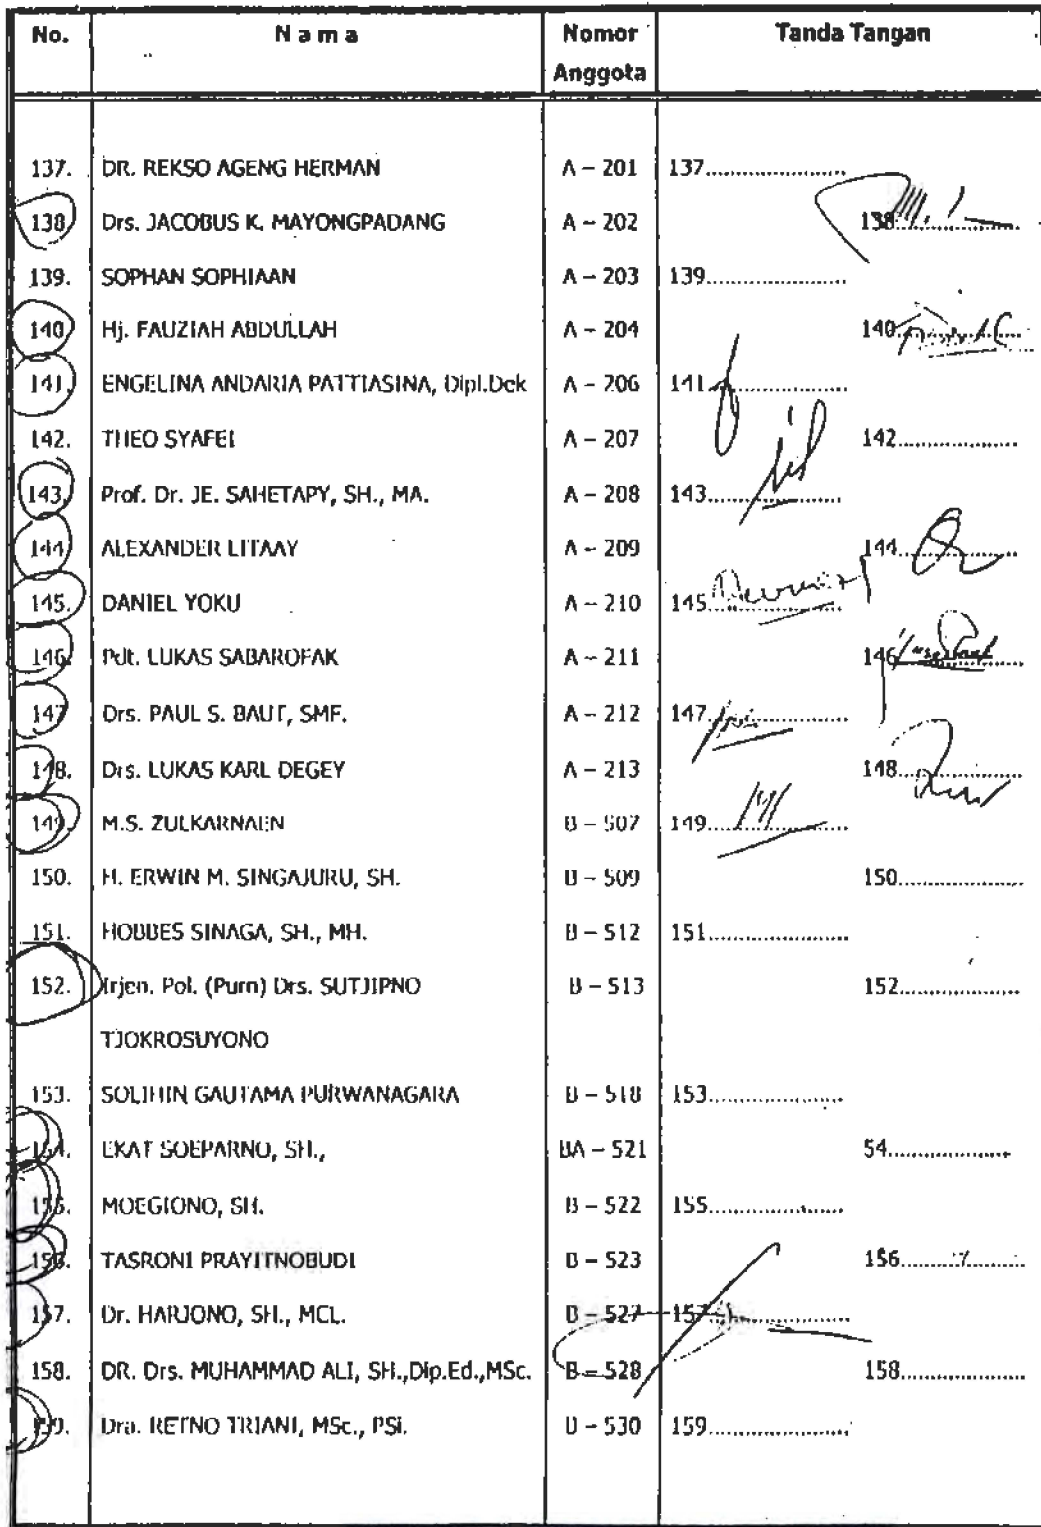 No. Nama Nomor Anggota Tanda Tangan
137. DR. REKSO AGENG HERMAN A – 201 137......................
138. Drs. JACOBUS K. MAYONGPADANG A – 202 138....................
139. SOPHAN SOPHIAAN A – 203 139......................
140. Hj. FAUZIAH ABDULLAH A – 204 140....................
141. ENGELINA ANDARIA PATTIASINA, Dipl.Oek A – 206 141......................
142. THEO SYAFEI A – 207 142....................
143. Prof. Dr. JE. SAHETAPY, SH., MA. A – 208 143......................
144. ALEXANDER LITAAY A – 209 144....................
145. DANIEL YOKU A – 210 145......................
146. Pdt. LUKAS SABAROFAK A – 211 146....................
147. Drs. PAUL S. BAUT, SMF. A – 212 147......................
148. Drs. LUKAS KARL DEGEY A – 213 148....................
149. M.S. ZULKARNAEN B – 507 149......................
150. H. ERWIN M. SINGAJURU, SH. B – 509 150....................
151. HOBBES SINAGA, SH., MH. B – 512 151......................
152. Irjen. Pol. (Purn) Drs. SUTJIPNO B – 513 152....................
TJOKROSUYONO
153. SOLIHIN GAUTAMA PURWANAGARA B – 518 153......................
154. EKAT SOEPARNO, SH., BA – 521 54....................
155. MOEGIONO, SH. B – 522 155......................
156. TASRONI PRAYITNOBUDI B – 523 156....................
157. Dr. HARJONO, SH., MCL. B – 527 157......................
158. DR. Drs. MUHAMMAD ALI, SH.,Dip.Ed.,MSc. B – 528 158....................
159. Dra. RETNO TRIANI, MSc., PSi. B – 530 159......................